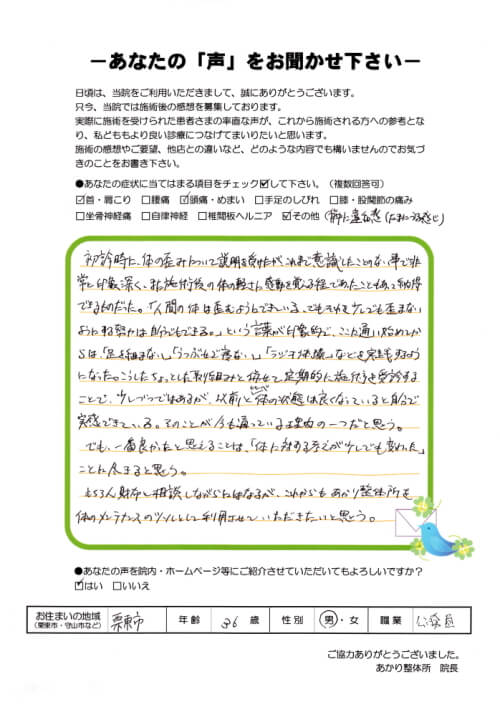 －あなたの「声」をお聞かせ下さい－
日頃は、当院をご利用いただきまして、誠にありがとうございます。
只今、当院では施術後の感想を募集しております。
実際に施術を受けられた患者さまの率直な声が、これから施術される方への参考とな
り、私どももより良い診療につなげてまいりたいと思います。
施術の感想やご要望、他店との違いなど、どのような内容でも構いませんのでお気づ
きのことをお書き下さい。
●あなたの症状に当てはまる項目をチェック☑して下さい。（複数回答可）
☑首・肩こり □腰痛 ☑頭痛・めまい □手足のしびれ □膝・股関節の痛み
□坐骨神経痛 □自律神経 □椎間板ヘルニア ☑その他（ に違和感（たまにつる感じ）
初診時に、体の歪みについて説明を受けたが、これまで意識したことのない事で非
常に印象深く、また施術後の体の軽さに感動を覚える程であったこともあって納得
できるものだった。「人間の体は歪むようにできている、でもそれを少しでも歪まない
ようにする努力は自分でもできる。」という言葉が印象的で、ここに通い始めてか
らは、「足を組まない」「うつぶせで寝ない」「ラジオ体操」などを実践するように
になった。こうしたちょっとした取り組みと併せて定期的に施術を受診する
ことで、少しづつではあるが、以前と比べ体の状態は良くなっていると自分で
実感できている。そのことが今も通っている理由の一つだと思う。
でも、一番良かったと思えることは、「体に対する考えが少しでも変わった」
ことに尽きると思う。
もちろん財布と相談しながらにはなるが、これからもあかり整体所を
体のメンテナンスのツールとして利用させていただきたいと思う。
●あなたの声を院内・ホームページ等にご紹介させていただいてもよろしいですか？
☑はい □いいえ
お住まいの地域（栗東市・守山市など） 栗東市 年齢 36 歳 性別 男・女 職業 公務員
ご協力ありがとうございました。
あかり整体所 院長